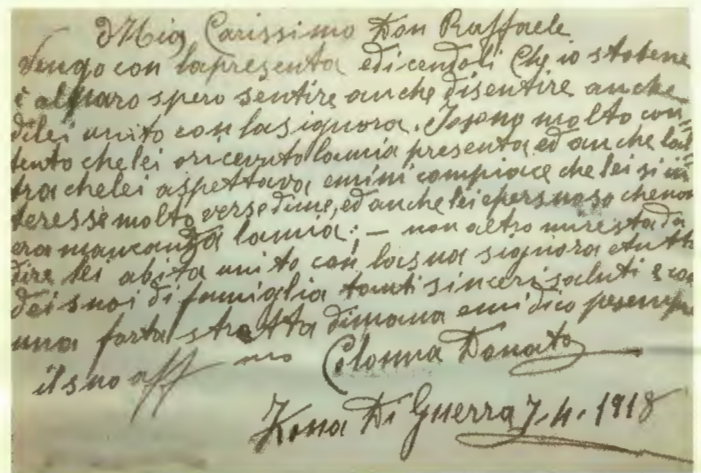 Mio Carissimo Don Raffaele
Vengo con lapresenta edicendoli Che io stobene
e alparo spero sentire anche disentire anche
dilei unito con lasignora. Iosono molto con=
tento chelei oricevuto lamia presenta ed anche lal
tra chelei aspettava emini compiace che lei si in
teresse molto verse dime, ed anche lei epersuoso chenon
era mancanza lamia; — non altro miresta da
dire lei abita unito con lasua signora etutti
dei suoi di famiglia tanti sinceri saluti e con
una forta stretta dimana emi dico psempre
il suo aff mo Colonna Donato
Zona Di Guerra 7.4.1918